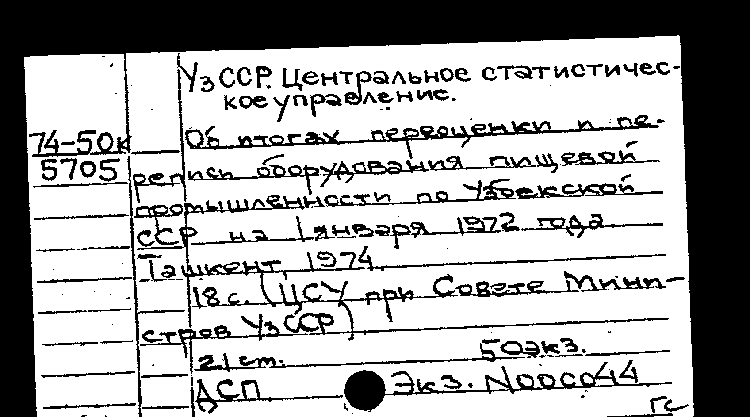 УзССР. Центральное статистичес-
кое управление.
74-50к
Об итогах переоценки и пе-
5705
реписи оборудования пищевой
промышленности по Узбекской
ССР на 1 января 1972 года.
Ташкент, 1974.
18с. (ЦСУ при Совете Мини-
стров УзССР)
21 ст. 50экз.
ДСП. Экз. N000044
гс